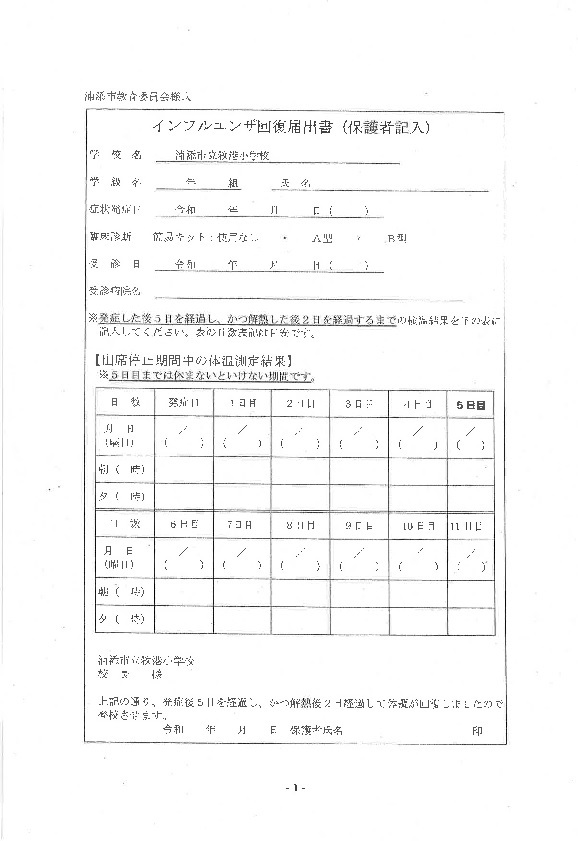 浦添市教育委員会様式
インフルエンザ回復届出書（保護者記入）
学 校 名 浦添市立牧港小学校
学 級 名 年 組 氏 名
症状発症日 令和 年 月 日（ ）
臨床診断 簡易キット：使用なし ・ A型 ・ B型
受 診 日 令和 年 月 日（ ）
受診病院名
※発症した後５日を経過し、かつ解熱した後２日を経過するまでの検温結果を下の表に
記入してください。表の日数表記は目安です。
【出席停止期間中の体温測定結果】
※５日目までは休まないといけない期間です。
日 数 発症日 1日目 2日目 3日目 4日目 5日目
月 日 ／ ／ ／ ／ ／ ／
(曜日) ( ) ( ) ( ) ( ) ( ) ( )
朝（ 時）
夕（ 時）
日 数 6日目 7日目 8日目 9日目 10日目 11日目
月 日 ／ ／ ／ ／ ／ ／
(曜日) ( ) ( ) ( ) ( ) ( ) ( )
朝（ 時）
夕（ 時）
浦添市立牧港小学校
校 長 様
上記の通り、発症後５日を経過し、かつ解熱後２日経過して体調が回復しましたので
登校させます。
令和 年 月 日 保護者氏名 印
- 1 -